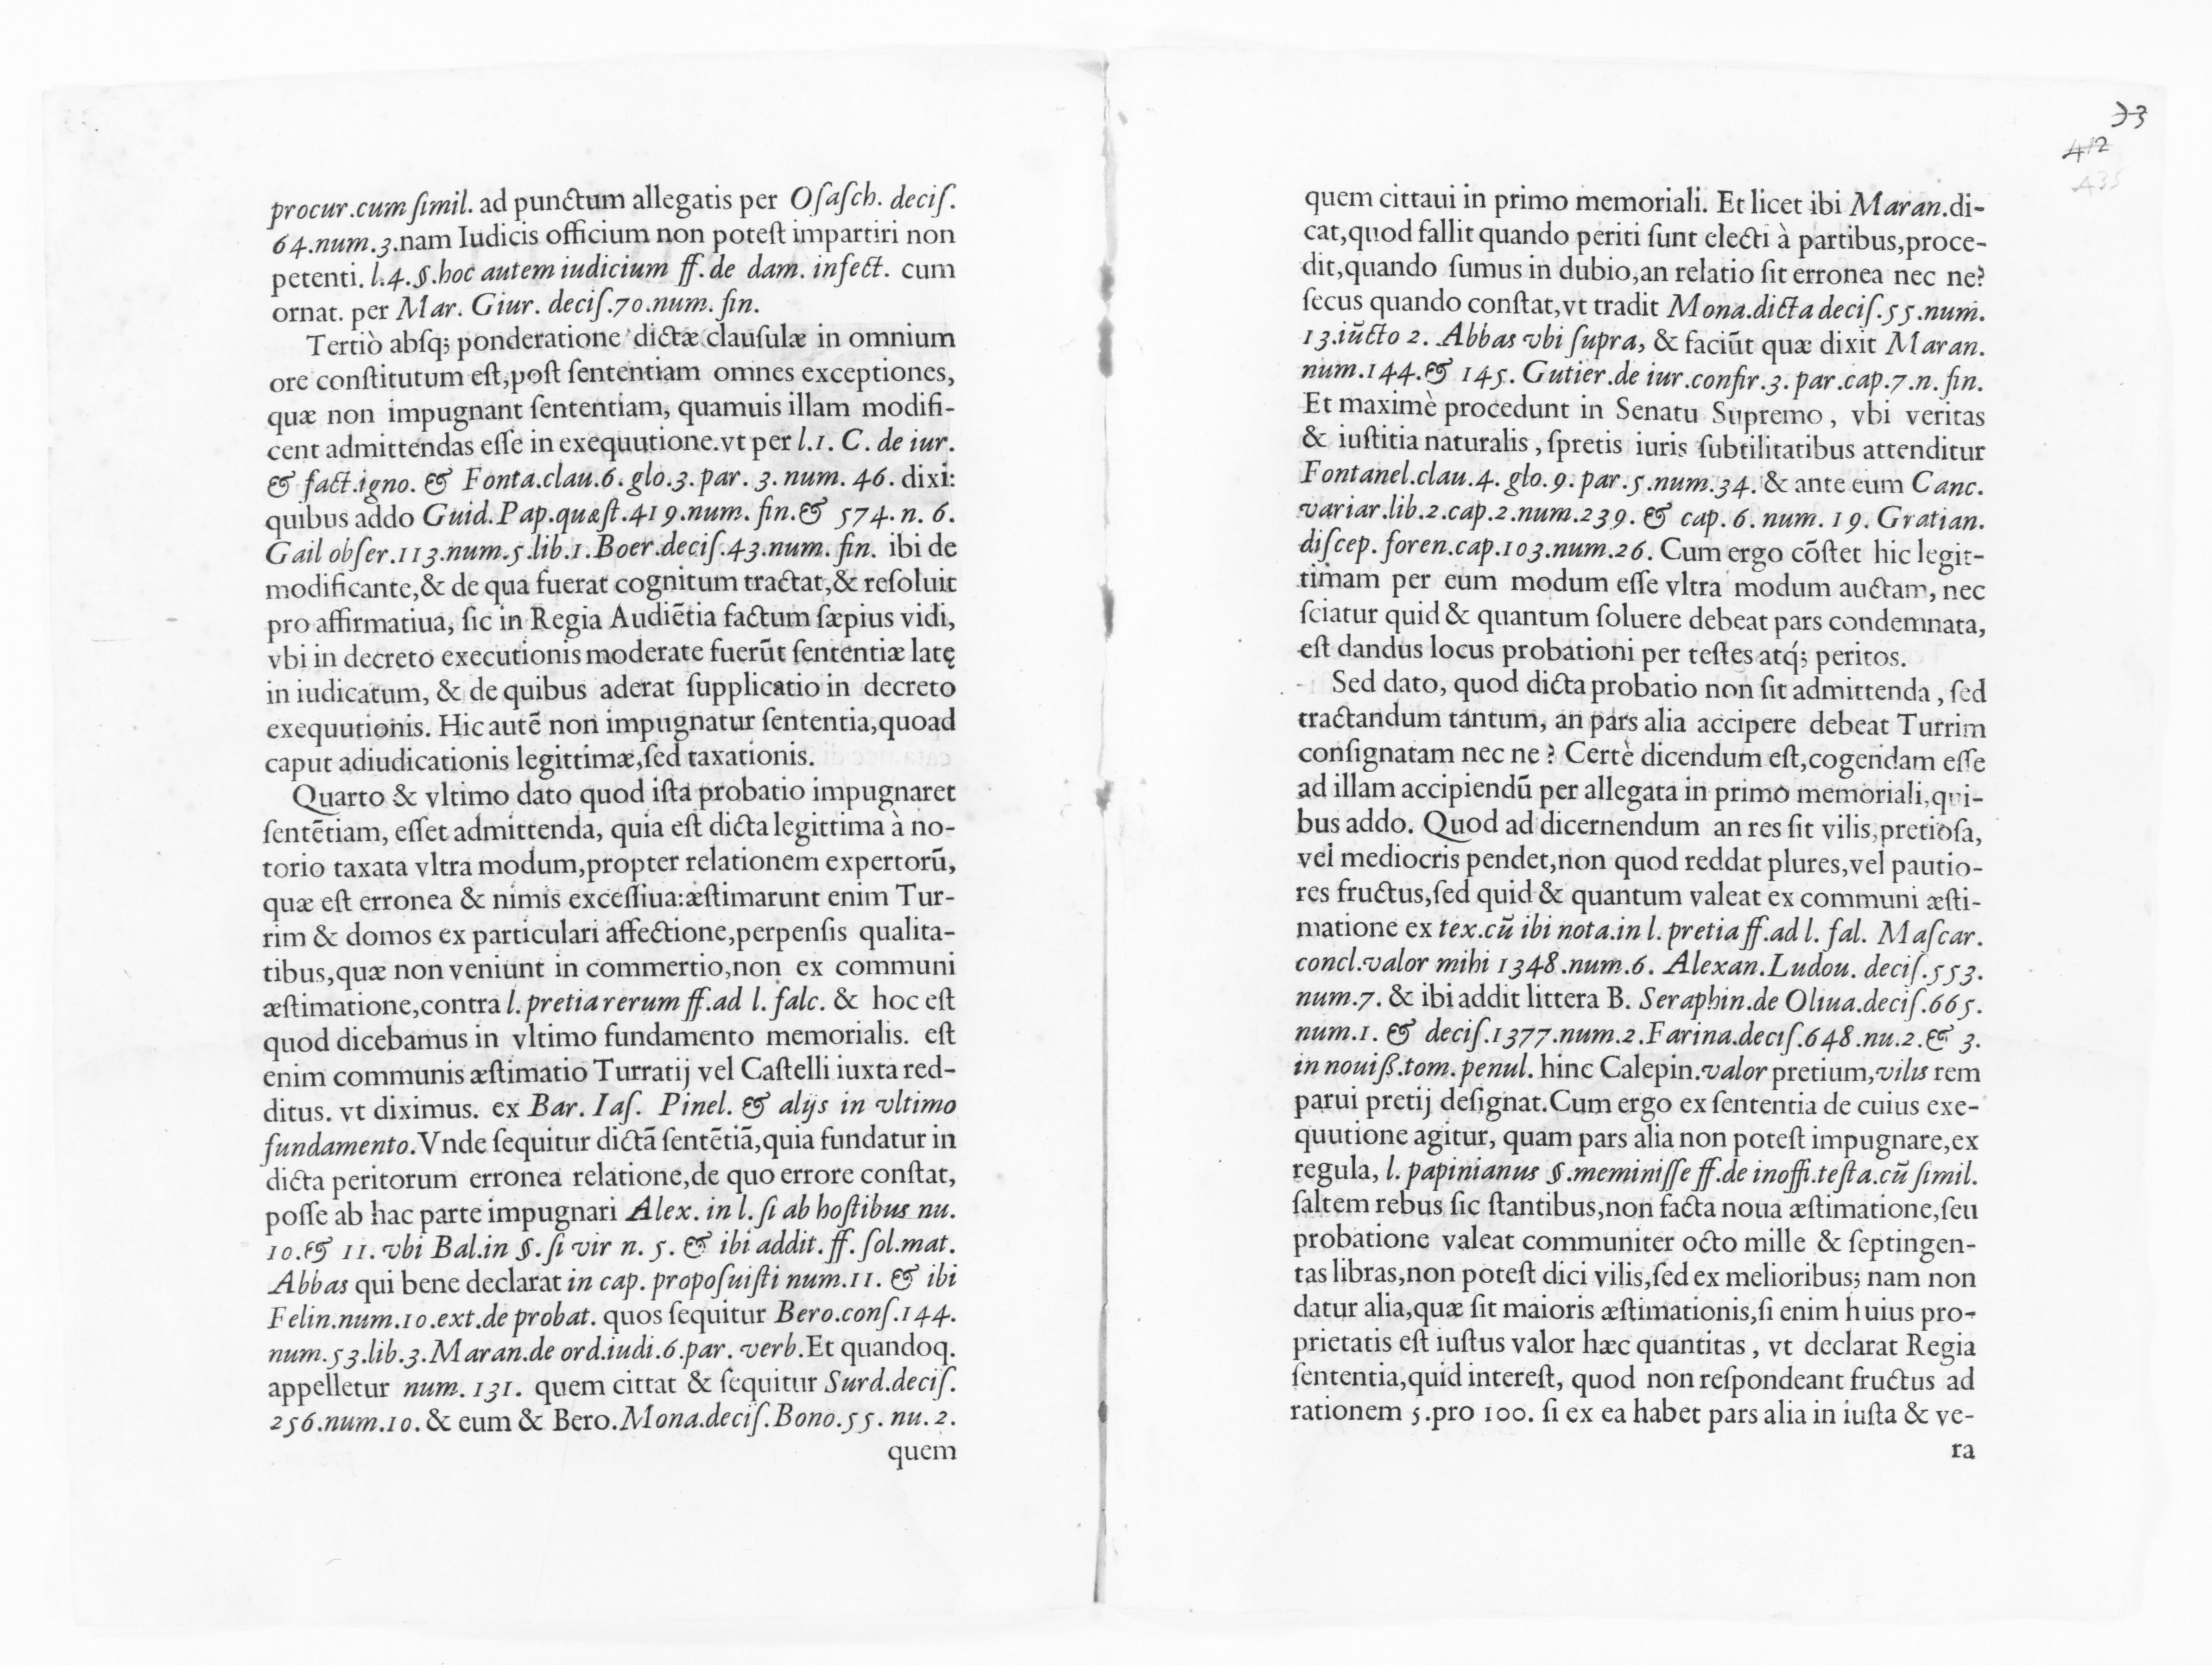 procur.cum ſimil. ad punctum allegatis per Oſaſch. deciſ.
64.num.3.nam Iudicis officium non poteſt impartiri non
petenti. l.4.§.hoc autem iudicium ff. de dam. infect. cum
ornat. per Mar. Giur. deciſ.70.num. fin.
Tertiò abſq; ponderatione dictæ clauſulæ in omnium
ore conſtitutum eſt,poſt ſententiam omnes exceptiones,
quæ non impugnant ſententiam, quamuis illam modifi-
cent admittendas eſſe in exequutione.vt per l.1. C. de iur.
& fact.igno. & Fonta.clau.6. glo.3. par. 3. num. 46. dixi:
quibus addo Guid.Pap.quæſt.419.num. fin.& 574. n. 6.
Gail obſer.113.num.5.lib.1.Boer.deciſ.43.num. fin. ibi de
modificante,& de qua fuerat cognitum tractat,& reſoluit
pro affirmatiua, ſic in Regia Audiētia factum ſæpius vidi,
vbi in decreto executionis moderate fuerūt ſententiæ latę
in iudicatum, & de quibus aderat ſupplicatio in decreto
exequutionis. Hic autē non impugnatur ſententia,quoad
caput adiudicationis legittimæ,ſed taxationis.
Quarto & vltimo dato quod iſta probatio impugnaret
ſentētiam, eſſet admittenda, quia eſt dicta legittima à no-
torio taxata vltra modum,propter relationem expertorū,
quæ eſt erronea & nimis exceſſiua:æſtimarunt enim Tur-
rim & domos ex particulari affectione,perpenſis qualita-
tibus,quæ non veniunt in commertio,non ex communi
æſtimatione,contra l. pretia rerum ff.ad l. falc. & hoc eſt
quod dicebamus in vltimo fundamento memorialis. eſt
enim communis æſtimatio Turratij vel Caſtelli iuxta red-
ditus. vt diximus. ex Bar. Iaſ. Pinel. & alijs in vltimo
fundamento. Vnde ſequitur dictā ſentētiā,quia fundatur in
dicta peritorum erronea relatione,de quo errore conſtat,
poſſe ab hac parte impugnari Alex. in l. ſi ab hoſtibus nu.
10.& 11. vbi Bal.in §. ſi vir n. 5. & ibi addit. ff. ſol.mat.
Abbas qui bene declarat in cap. propoſuiſti num.11. & ibi
Felin.num.10.ext.de probat. quos ſequitur Bero.conſ.144.
num.53.lib.3.Maran.de ord.iudi.6.par. verb.Et quandoq.
appelletur num. 131. quem cittat & ſequitur Surd.deciſ.
256.num.10. & eum & Bero.Mona.deciſ.Bono.55. nu. 2.
quem
33
412
435
quem cittaui in primo memoriali. Et licet ibi Maran.di-
cat,quod fallit quando periti ſunt electi à partibus,proce-
dit,quando ſumus in dubio,an relatio ſit erronea nec ne?
ſecus quando conſtat,vt tradit Mona.dicta deciſ.55.num.
13.iūcto 2. Abbas vbi ſupra, & faciūt quæ dixit Maran.
num.144.& 145. Gutier.de iur.confir.3. par.cap.7.n. fin.
Et maximè procedunt in Senatu Supremo, vbi veritas
& iuſtitia naturalis, ſpretis iuris ſubtilitatibus attenditur
Fontanel.clau.4. glo.9. par.5.num.34. & ante eum Canc.
variar.lib.2.cap.2.num.239. & cap. 6. num. 19. Gratian.
diſcep. foren.cap.103.num.26. Cum ergo cōſtet hic legit-
timam per eum modum eſſe vltra modum auctam, nec
ſciatur quid & quantum ſoluere debeat pars condemnata,
eſt dandus locus probationi per teſtes atq́; peritos.
Sed dato, quod dicta probatio non ſit admittenda, ſed
tractandum tantum, an pars alia accipere debeat Turrim
conſignatam nec ne? Certè dicendum eſt,cogendam eſſe
ad illam accipiendū per allegata in primo memoriali,qui-
bus addo. Quod ad dicernendum an res ſit vilis,pretioſa,
vel mediocris pendet,non quod reddat plures,vel pautio-
res fructus,ſed quid & quantum valeat ex communi æſti-
matione ex tex.cū ibi nota.in l. pretia ff.ad l. fal. Maſcar.
concl.valor mihi 1348.num.6. Alexan.Ludou. deciſ.553.
num.7. & ibi addit littera B. Seraphin.de Oliua.deciſ.665.
num.1. & deciſ.1377.num.2.Farina.deciſ.648.nu.2.& 3.
in nouiß.tom. penul. hinc Calepin.valor pretium,vilis rem
parui pretij deſignat.Cum ergo ex ſententia de cuius exe-
quutione agitur, quam pars alia non poteſt impugnare,ex
regula, l. papinianus §.meminiſſe ff.de inoffi.teſta.cū ſimil.
ſaltem rebus ſic ſtantibus,non facta noua æſtimatione,ſeu
probatione valeat communiter octo mille & ſeptingen-
tas libras,non poteſt dici vilis,ſed ex melioribus; nam non
datur alia,quæ ſit maioris æſtimationis,ſi enim huius pro-
prietatis eſt iuſtus valor hæc quantitas, vt declarat Regia
ſententia,quid intereſt, quod non reſpondeant fructus ad
rationem 5.pro 100. ſi ex ea habet pars alia in iuſta & ve-
ra